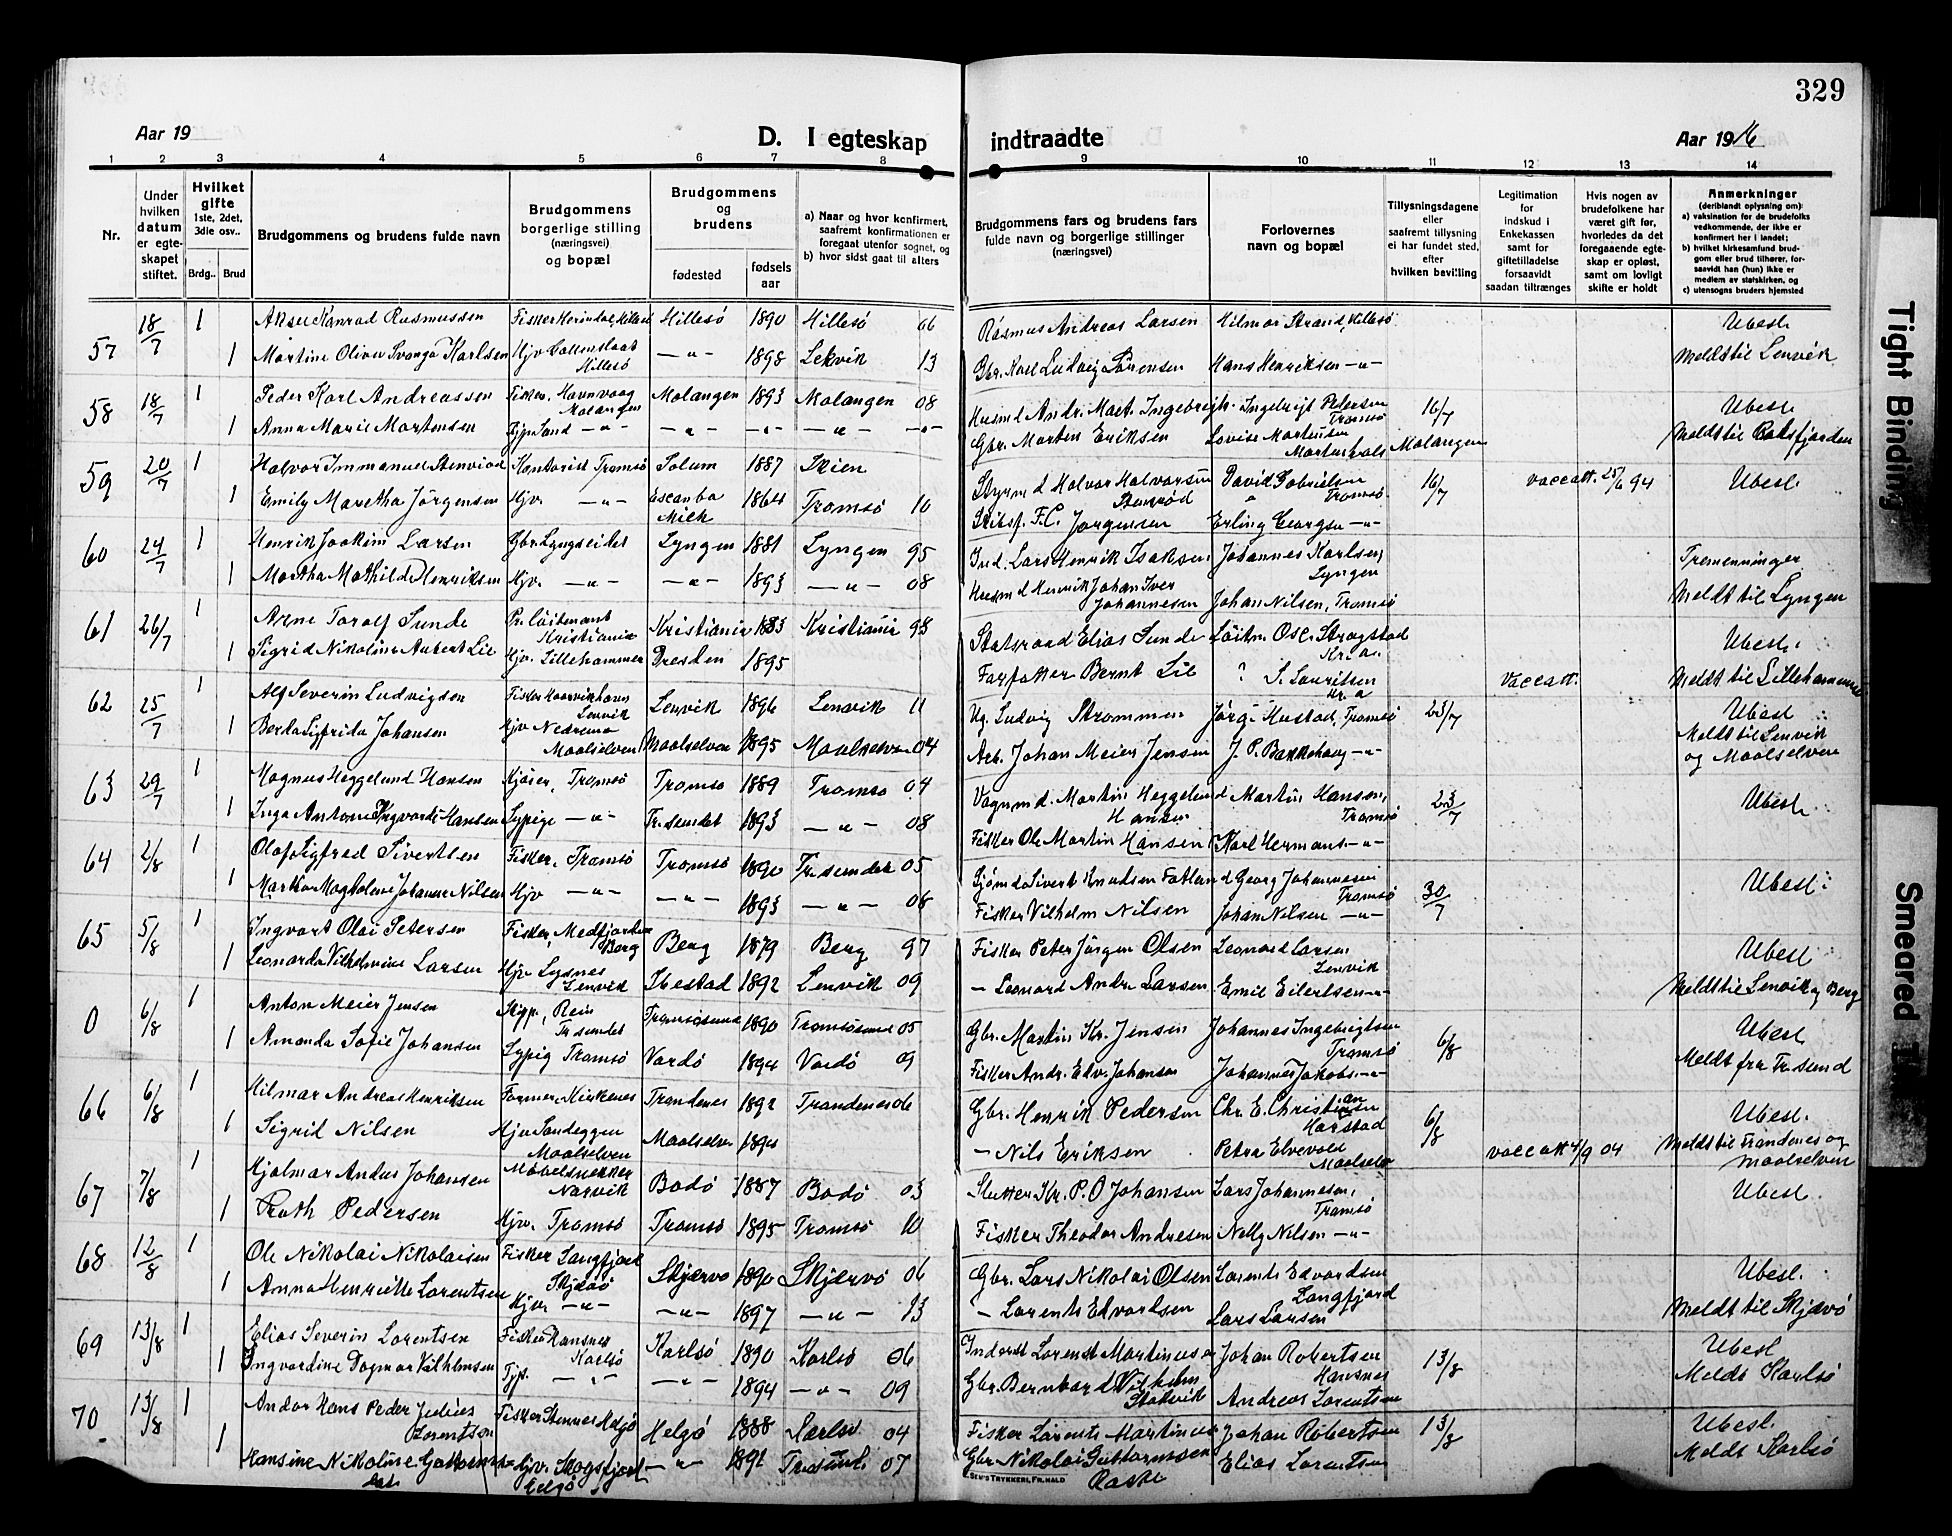 329
Aar 19
D. I egteskap
indtraadte
Aar 1916
1 2 3 4 5 6 7 8 9 10 11 12 13 14
Nr.
Under hvilken datum er egteskapet stiftet.
Hvilket gifte 1ste, 2det, 3die osv..
Brdg.. Brud
Brudgommens og brudens fulde navn
Brudgommens borgerlige stilling (næringsvei) og bopæl
Brudgommens og brudens
fødested
fødsels aar
a) Naar og hvor konfirmert, saafremt konfirmationen er foregaat utenfor sognet, og
b) hvor sidst gaat til alters
Brudgommens fars og brudens fars fulde navn og borgerlige stillinger (næringsvei)
Forlovernes navn og bopæl
Tillysningsdagene eller saafremt tillysning ei har fundet sted, efter hvilken bevilling
Legitimation for indskud i Enkekassen samt for giftetilladelse forsaavidt saadan tiltrænges
Hvis nogen av brudefolkene har været gift før, hvorledes da det foregaaende egteskap er opløst, samt om lovligt skifte er holdt
Anmerkninger (deriblandt oplysning om):
a) vaksination for de brudefolks vedkommende, der ikke er konfirmert her i landet;
b) hvilket kirkesamfund brudgom eller brud tilhører, forsaavidt han (hun) ikke er medlem av statskirken, og
c) utensogns bruders hjemsted
57 18/7 1 Aksel Konrad Rasmussen Fisker Hillesö 1890 Hillesö 06 Rasmus Andreas Larsen Hilmar Strand, Hillesö Ubesl.
1 Martine Olive Karlsen Hjv. Hillesö —"— 1898 Lekvik 13 Gbr. Karl Ludvig Sörensen Hans Henriksen —"— Meldt til Lenvik
58 18/7 1 Peder Karl Andreassen Fisker, Havnvaag Malangen Malangen 1893 Malangen 08 Husmd Andr. Mart. Ingebrigts. Ingebrigt Petersen Tromsö 16/7 Ubesl.
1 Anna Marie Mortensen Sand —"— —"— —"— —"— —"— Gbr. Morten Eriksen Lovise Mortensen Mortenhals Malangen Meldt til Balsfjorden
59 20/7 1 Halvor Immanuel Kontorist Tromsö Solum 1887 Skien Styrmd Halvor Halvorsen David Gabrielsen Tromsö 16/7 vaccatt. 25/6 94 Ubesl.
1 Emily Maretha Jörgensen Hjv. —"— Escanba Mich 1864 Tromsö 10 Skibsf. F.C. Jörgensen Erling Georgsen —"—
60 24/7 1 Henrik Joakim Larsen Gbr. Lyngseidet Lyngen 1881 Lyngen 95 Ind. Lars Henrik Isaksen Johannes Karlsen, Lyngen Tremenninger
1 Martha Mathilde Henriksen Hjv. —"— —"— 1893 —"— 08 Husmd Henrik Johan Iver Johannesen Johan Nilsen, Tromsö Meldt til Lyngen
61 26/7 1 Arne Toralf Sunde Pr. löitenant Kristiania Kristiania 1883 Kristiania 98 Statsraad Elias Sunde Löitn. Osc. Stragstad Kr.a. Ubesl.
1 Sigrid Nikoline Aubert Lie Hjv. Lillehammer Dresden 1895 Forfatter Bernt Lie ? S. Lauritsen Kr.a Vaccatt. Meldt til Lillehammer
62 25/7 1 Alf Severin Ludvigsen Fisker Lenvik Lenvik 1896 Lenvik 11 Ug. Ludvig Strømmen Jörg. Hustad, Tromsö 23/7 Ubesl
1 Berda Sigfrida Johansen Hjv. Maalselven Maalselven 1895 Maalselven 04 Arb. Johan Meier Jensen J. P. Bakkehaug —"— Meldt til Lenvik og Maalselven
63 29/7 1 Magnus Heggelund Hansen Kjörer, Tromsö Tromsö 1889 Tromsö 04 Vognmd. Martin Heggelund Hansen Martin Hansen, Tromsö 23/7 Ubesl
1 Inga Antonie Ingvarda Hansen Sypige —"— Tr.sundet 1893 —"— 08 Fisker Ole Martin Hansen Karl Hermans. —"—
64 2/8 1 Olaf Sigfred Sivertsen Fisker, Tromsö Tromsö 1890 Tr.sundet 05 Sjömd Sivert Knudsen Fatland Georg Johannesen Tromsö 30/7 Ubesl.
1 Magdalene Johanne Nilsen Hjv —"— —"— 1893 —"— 08 Fisker Vilhelm Nilsen Johan Nilsen —"—
65 5/8 1 Ingvart Olai Petersen Fisker, Medfjorden Berg Berg 1879 Berg 97 Fisker Peter Jörgen Olsen Leonard Larsen Lenvik Ubesl
1 Leonarda Vilhelmine Larsen Hjv. Lysnes Lenvik Ibestad 1892 Lenvik 09 — Leonard Andr. Larsen Emil Eilertsen —"— Meldt til Lenvik og Berg
0 6/8 1 Anton Meier Jensen Skipp, Rein Tr.sundet Tromsösund 1890 Tromsösund 05 Gbr. Martin Kr. Jensen Johannes Ingebrigtsen Tromsö 6/8 Ubesl
1 Amanda Sofie Johansen Sypig Tromsö Vardö 1894 Vardö 09 Fisker Andr. Edv. Johansen Johannes Jakobs. —"— Meldt fra Tr.sund
66 6/8 1 Hilmar Andreas Henriksen Former, Kirkenes Trondenes 1892 Trondenes 06 Gbr. Henrik Pedersen Chr. E. Christiansen Harstad 6/8 Ubesl.
1 Sigrid Nilsen Hjv. Sandeggen Maalselven Maalselv. 1894 — Nils Eriksen Petra Elvevold Maalselv vaccatt 4/9 04 Meldt til Trondenes og Maalselven
67 7/8 1 Hjalmar Andus Johansen Möbelsnekker Narvik Bodö 1887 Bodö 03 Slutter Kr. P. O Johansen Lars Johannesen, Tromsö Ubesl.
1 Ruth Pedersen Hjv. Tromsö Tromsö 1895 Tromsö 10 Fisker Theodor Andresen Nelly Nilsen —"—
68 12/8 1 Ole Nikolai Nikolaisen Fisker Langfjord Skjærvö Skjærvö 1890 Skjærvö 06 Gbr. Lars Nikolai Olsen Lorents Edvardsen Langfjord Ubesl.
1 Anna Henriette Lorentsen Hjv. —"— —"— 1897 —"— 13 — Lorents Edvardsen Lars Larsen Meldt til Skjærvö
69 13/8 1 Elias Severin Lorentsen Fisker Hansnes Karlsö Karlsö 1890 Karlsö 06 Inderst Lorents Martinusen Johan Robertsen Hansnes 13/8 Ubesl
1 Ingvardine Dagmar Vilhelmsen Tjp. —"— —"— 1894 —"— 09 Gbr. Bernhard Vilhelm Stakvik Andreas Lorentsen Meldt Karlsö
70 13/8 1 Andor Hans Peder Julius Lorentsen Fisker Stennes Helgö Helgö 1888 Karlsö 04 Fisker Lorents Martinus Johan Robertsen 13/8 Ubesl.
1 Hansine Nikoline Hjv. Skogsfjord Helgö —"— 1891 Tr.sund. 07 Gbr. Nikolai Guttormsen Elias Lorentsen Meldt Karlsö
SEM'S TRYKKERI, FR.HALD
Tight Binding
Smeared